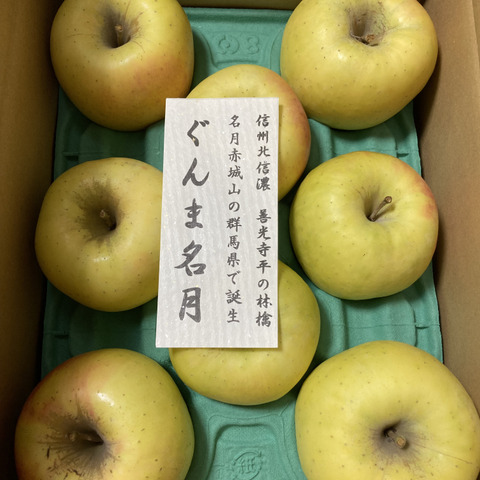 信州北信濃　善光寺平の林檎
名月赤城山の群馬県で誕生
ぐんま名月